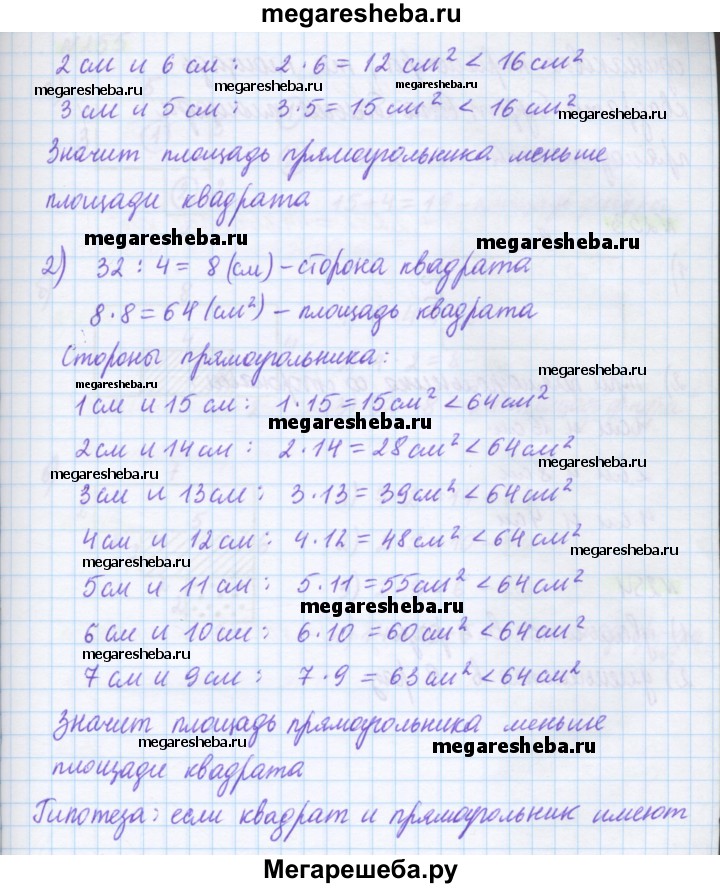 megaresheba.ru
2 см и 6 см: 2·6 = 12 см² < 16 см²
megaresheba.ru megaresheba.ru
3 см и 5 см: 3·5 = 15 см² < 16 см²
megaresheba.ru
Значит площадь прямоугольника меньше
площади квадрата
megaresheba.ru megaresheba.ru
2) 32 : 4 = 8 (см) – сторона квадрата
8·8 = 64 (см²) – площадь квадрата
Стороны прямоугольника:
megaresheba.ru megaresheba.ru
1 см и 15 см: 1·15 = 15 см² < 64 см²
2 см и 14 см: 2·14 = 28 см² < 64 см²
megaresheba.ru megaresheba.ru
3 см и 13 см: 3·13 = 39 см² < 64 см²
4 см и 12 см: 4·12 = 48 см² < 64 см²
megaresheba.ru
5 см и 11 см: 5·11 = 55 см² < 64 см²
megaresheba.ru
6 см и 10 см: 6·10 = 60 см² < 64 см²
megaresheba.ru
7 см и 9 см: 7·9 = 63 см² < 64 см²
Значит площадь прямоугольника меньше
megaresheba.ru megaresheba.ru
площади квадрата
Гипотеза: если квадрат и прямоугольник имеют
Мегарешеба.ру